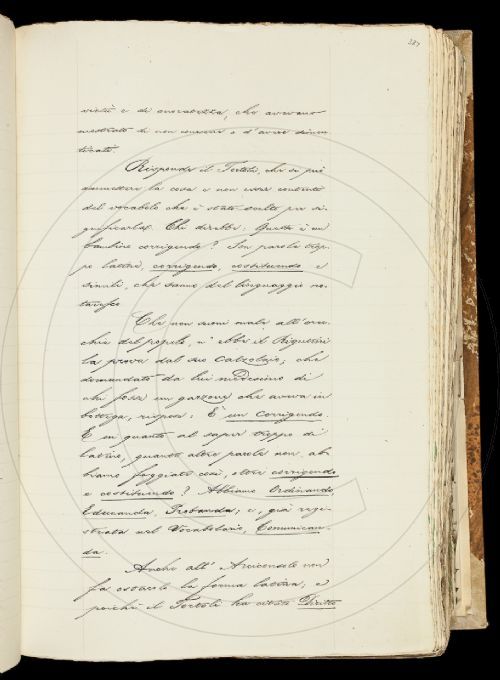 387
virtù e di onoratezza, che avevano
mostrato di non conoscere o d'avere dimen
ticato.
Risponde il Tortoli, che si può
ammettere la cosa e non esser contenti
del vocabolo che è stato scelto per si-
gnificarla. Chi direbbe: Questo è un
bambino corrigendo? Son parole trop-
po latine, corrigendo, costituendo e
simili, che sanno del linguaggio no-
taresco.
Che non suoni male all'orec-
chio del popolo, n'ebbe il Rigutini
la prova dal suo calzolaio; che
domandato da lui medesimo di
chi fosse un garzone che aveva in
bottega, rispose: È un corrigendo.
E in quanto al saper troppo di
latino, quante altre parole non ab-
biamo foggiate così, oltre corrigendo
e costituendo? Abbiamo Ordinando,
Educanda, Probanda; e, già regi-
strata nel Vocabolario, Comunican-
da.
Anche all'Arciconsolo non
fa ostacolo la forma latina; e
poichè il Tortoli ha citato Diritto